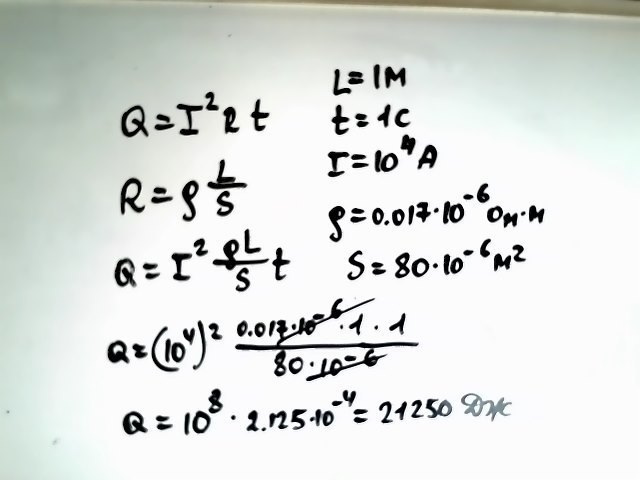 L = 1м
Q = I² R t
t = 1с
I = 10⁴ А
R = ρ L/S
ρ = 0.017·10⁻⁶ Ом·м
Q = I² ρL/S t
S = 80·10⁻⁶ м²
Q = (10⁴)² 0.017·10⁻⁶·1·1 / 80·10⁻⁶
Q = 10⁸ · 2.125·10⁻⁴ = 21250 Дж